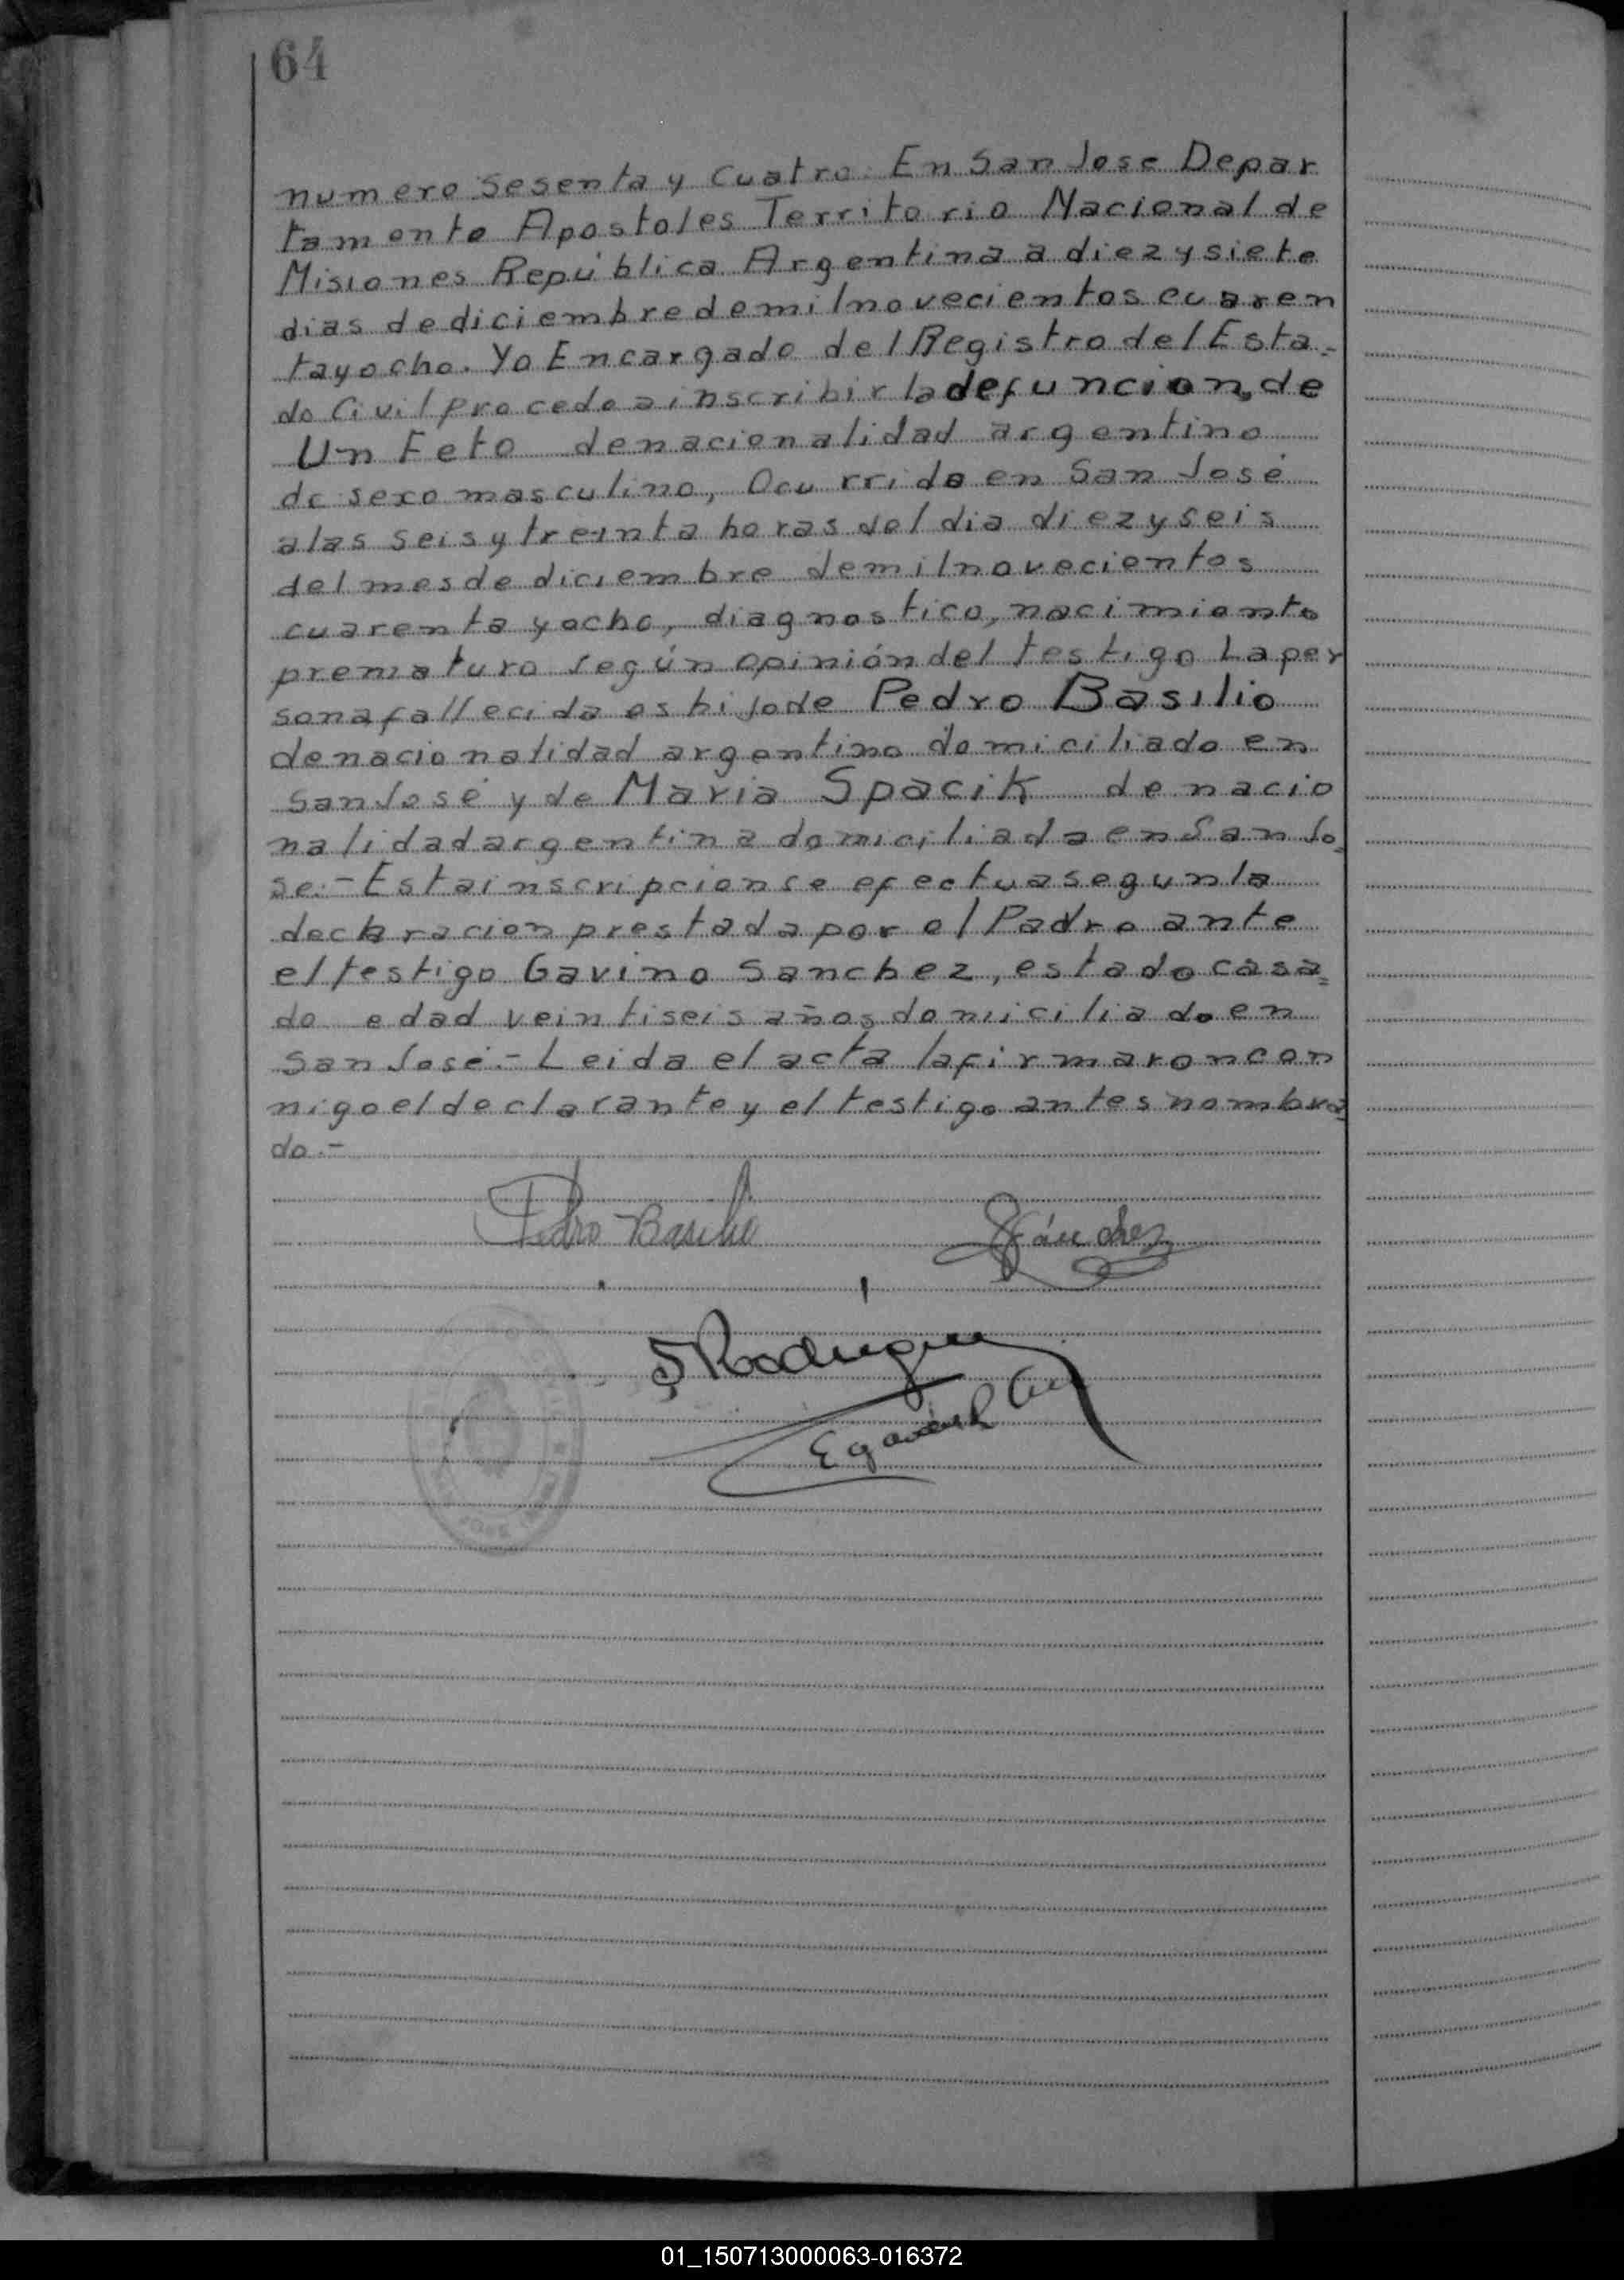 64
numero sesenta y cuatro. En San Jose Depar
tamento Apostoles Territorio Nacional de
Misiones República Argentina a diez y siete
dias de diciembre de mil novecientos cuaren
ta y ocho. Yo Encargado del Registro del Esta=
do Civil procedo a inscribir la defuncion, de
Un Feto de nacionalidad argentino
de sexo masculino, Ocurrido en San José
a las seis y treinta horas del dia diez y seis
del mes de diciembre de mil novecientos
cuarenta y ocho, diagnostico, nacimiento
prematuro según opinión del testigo La per
sona fallecida es hijo de Pedro Basilio
de nacionalidad argentino domiciliado en
San José y de Maria Spacik de nacio
nalidad argentina domiciliada en San Jo=
se.- Esta inscripcion se efectua segun la
declaracion prestada por el Padre ante
el testigo Gavino Sanchez, estado casa=
do edad veintiseis años domiciliado en
San José.- Leida el acta la firmaron con
migo el declarante y el testigo antes nombra
do.-
Pedro Basilio Sánchez
Rodriguez
01_150713000063-016372